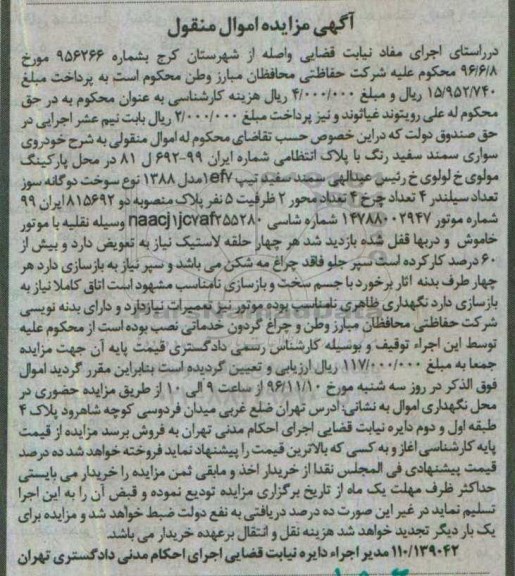 آگهی مزایده اموال منقول
درراستای اجرای مفاد نیابت قضایی واصله از شهرستان کرج بشماره ۹۵۶۲۶۶ مورخ
۹۶/۶/۸ محکوم علیه شرکت حفاظتی محافظان مبارز وطن محکوم است به پرداخت مبلغ
۱۵/۹۵۲/۷۴۰ ریال و مبلغ ۴/۰۰۰/۰۰۰ ریال هزینه کارشناسی به عنوان محکوم به در حق
محکوم له علی رویتوند غیاثوند و نیز پرداخت مبلغ ۲/۰۰۰/۰۰۰ ریال بابت نیم عشر اجرایی در
حق صندوق دولت که دراین خصوص حسب تقاضای محکوم له اموال منقولی به شرح خودروی
سواری سمند سفید رنگ با پلاک انتظامی شماره ایران ۹۹-۶۹۲ ل ۸۱ در محل پارکینگ
مولوی خ لولوی خ رئیس عبدالهی سمند سفید تیپ ef۷ا مدل ۱۳۸۸ نوع سوخت دوگانه سوز
تعداد سیلندر ۴ تعداد چرخ ۴ تعداد محور ۲ ظرفیت ۵ نفر پلاک منصوبه دو ۸۱۵۶۹۲ ایران ۹۹
شماره موتور ۱۴۷۸۸۰۰۲۹۴۷ شماره شاسی naacj۱jcvaf۲۵۵۲۸۰ وسیله نقلیه با موتور
خاموش و دربها قفل شده بازدید شد هر چهار حلقه لاستیک نیاز به تعویض دارد و بیش از
۶۰ درصد کارکرده است سپر جلو فاقد چراغ مه شکن می باشد و سپر نیاز به بازسازی دارد هر
چهار طرف بدنه آثار برخورد با جسم سخت و بازسازی نامناسب مشهود است اتاق کاملا نیاز به
بازسازی دارد نگهداری ظاهری نامناسب بوده موتور نیز تعمیرات نیازدارد و دارای بدنه نویسی
شرکت حفاظتی محافظان مبارز وطن و چراغ گردون خدماتی نصب بوده است از محکوم علیه
توسط این اجراء توقیف و بوسیله کارشناس رسمی دادگستری قیمت پایه آن جهت مزایده
جمعا به مبلغ ۱۱۷/۰۰۰/۰۰۰ ریال ارزیابی و تعیین گردیده است بنابراین مقرر گردید اموال
فوق الذکر در روز سه شنبه مورخ ۹۶/۱۱/۱۰ از ساعت ۹ الی ۱۰ از طریق مزایده حضوری در
محل نگهداری اموال به نشانی: آدرس تهران ضلع غربی میدان فردوسی کوچه شاهرود پلاک ۴
طبقه اول و دوم دایره نیابت قضایی اجرای احکام مدنی تهران به فروش برسد مزایده از قیمت
پایه کارشناسی اغاز و به کسی که بالاترین قیمت را پیشنهاد نماید فروخته خواهد شد ده درصد
قیمت پیشنهادی فی المجلس نقدا از خریدار اخذ و مابقی ثمن مزایده را خریدار می بایستی
حداکثر ظرف مهلت یک ماه از تاریخ برگزاری مزایده تودیع نموده و قبض آن را به این اجرا
تسلیم نماید در غیر این صورت ده درصد دریافتی به نفع دولت ضبط خواهد شد و مزایده برای
یک بار دیگر تجدید خواهد شد هزینه نقل و انتقال برعهده خریدار می باشد.
۱۱۰/۱۳۹۰۴۲ مدیر اجراء دایره نیابت قضایی اجرای احکام مدنی دادگستری تهران